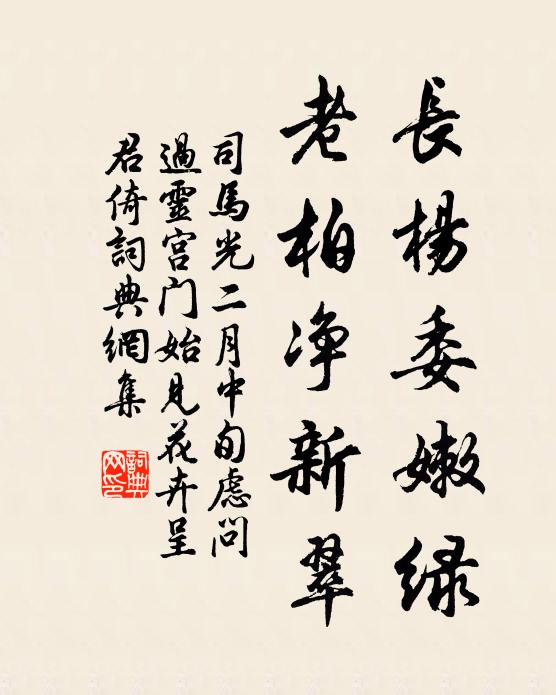 長楊委嫩緑
老柏净新翠
司馬光二月中旬慮問
過靈宫门始見花卉呈
君倚詞典網集
詞典网印